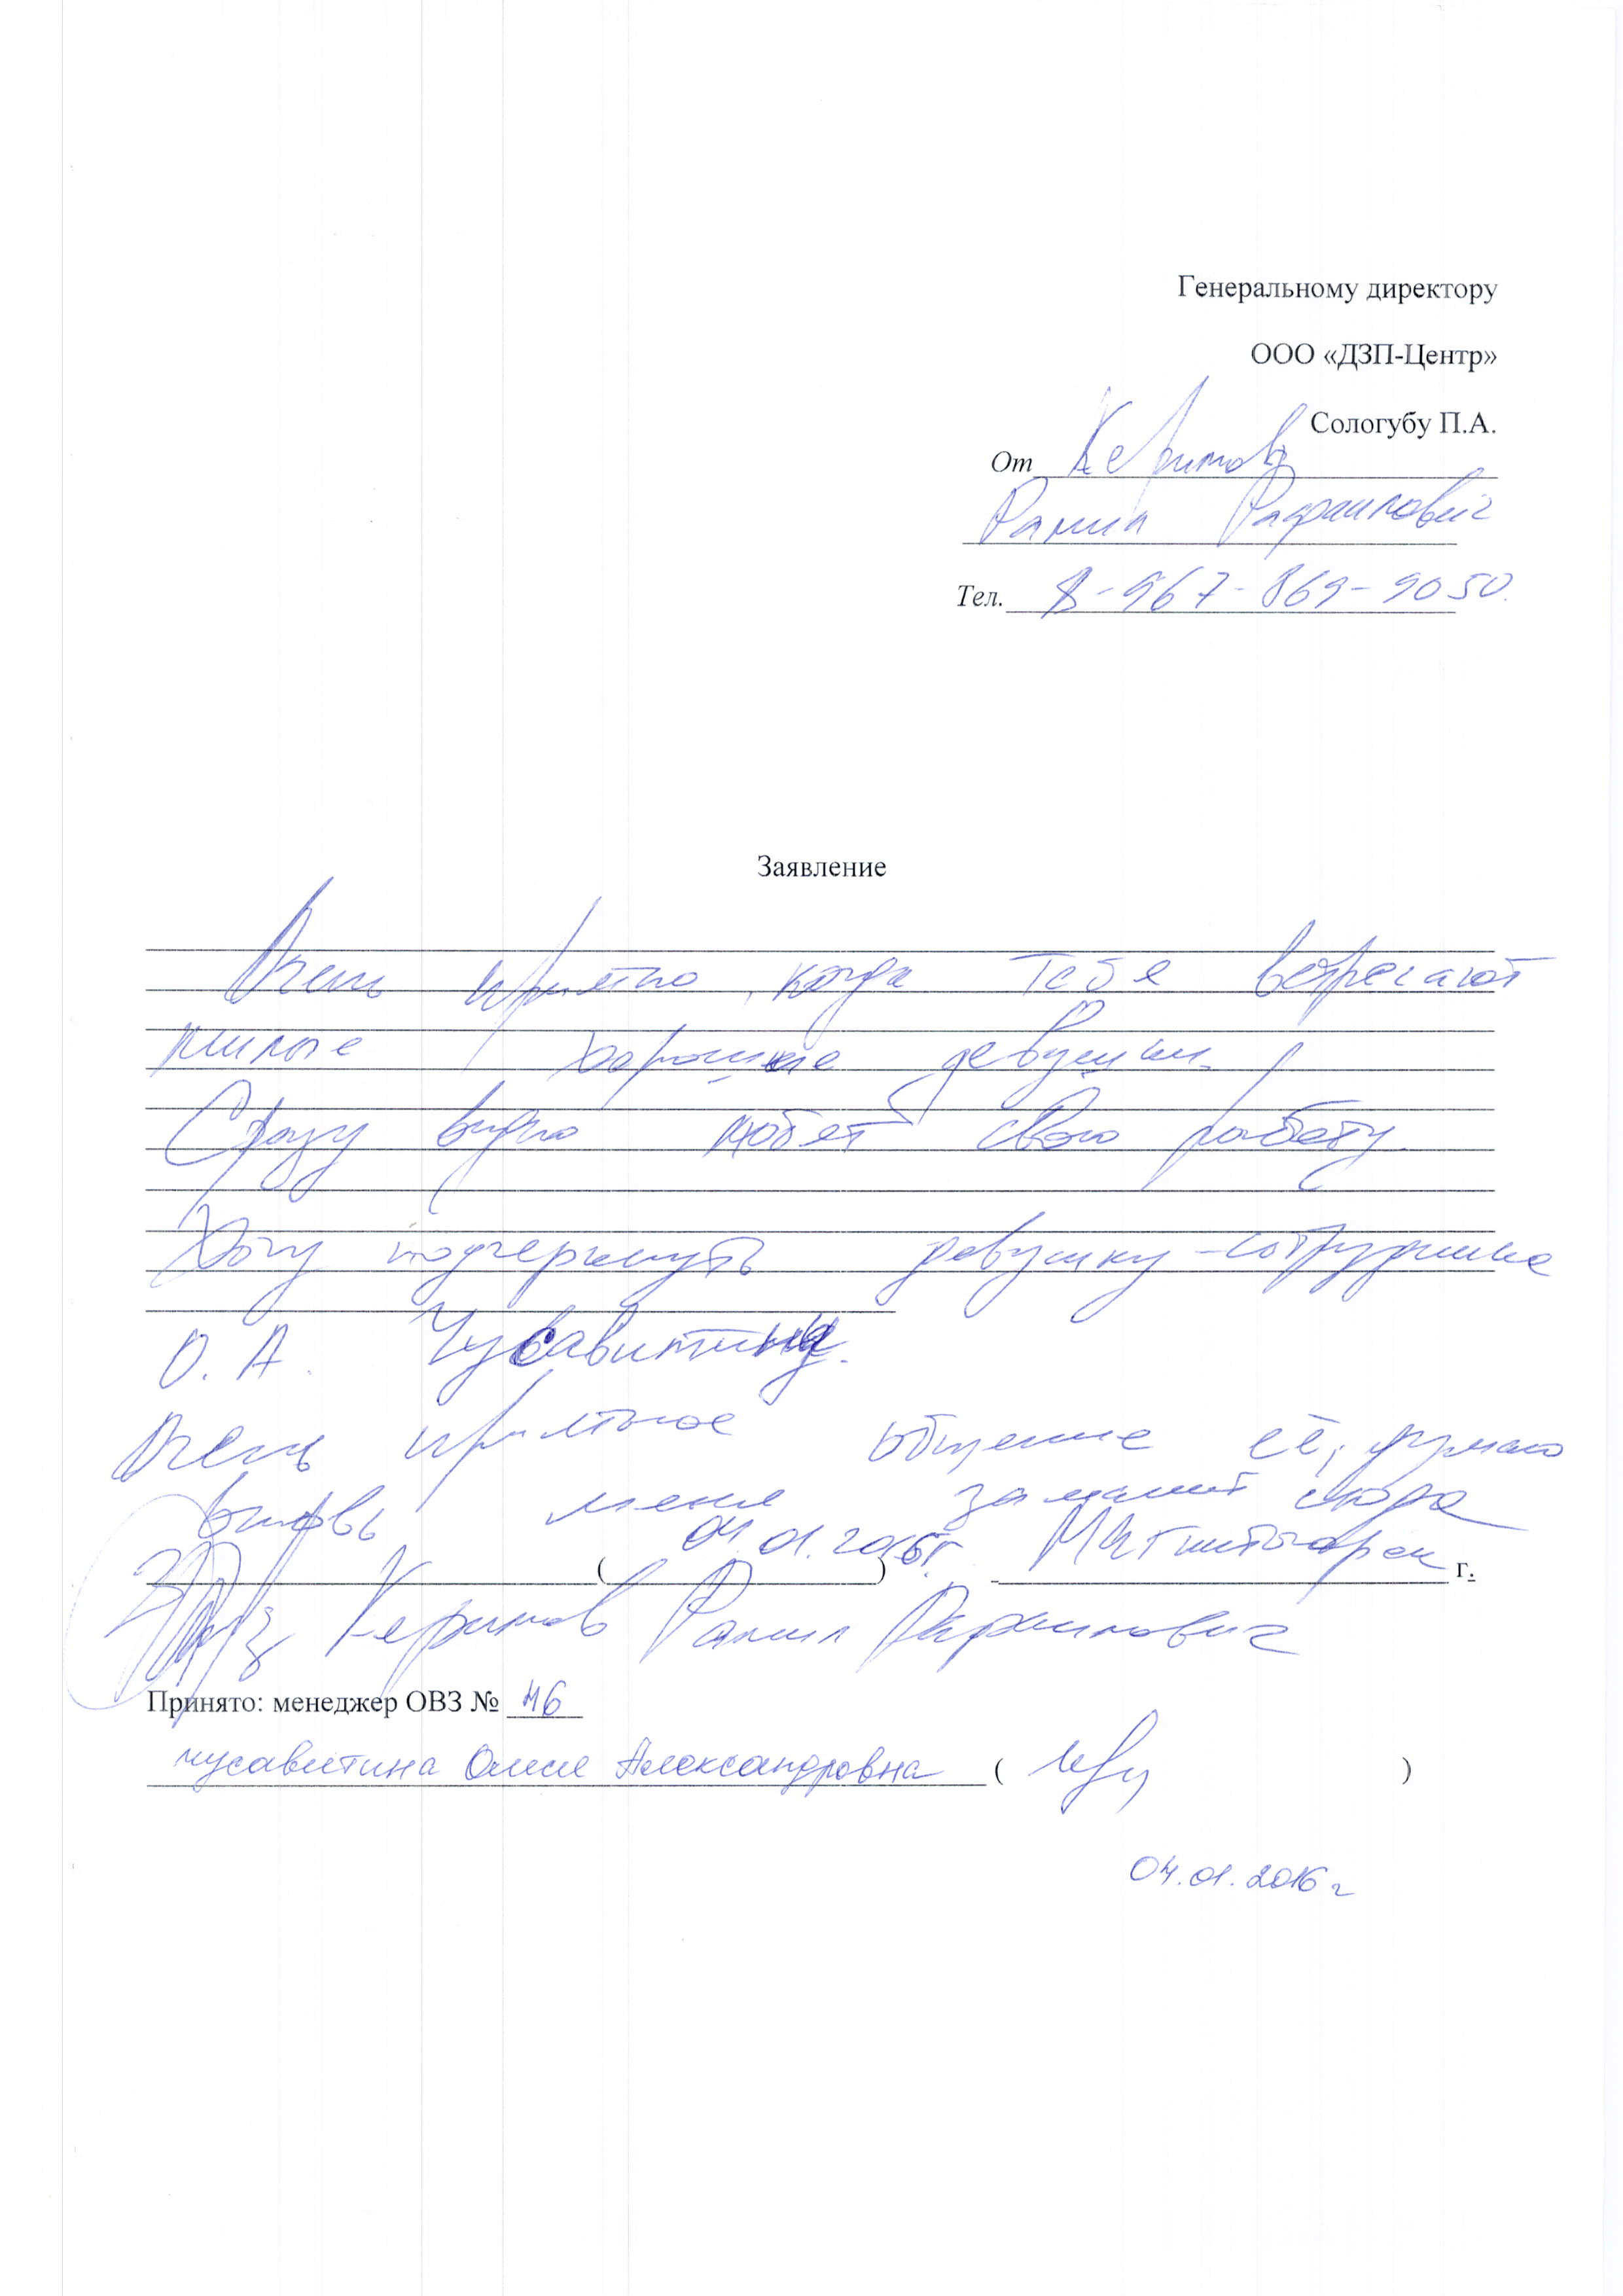 Генеральному директору
ООО «ДЗП-Центр»
Сологубу П.А.
От Керимов
Рамил Рафаилович
Тел. 8-967-869-9050
Заявление
Очень приятно, когда тебя встречают
милые хорошие девушки.
Сразу видно любят свою работу.
Хочу подчеркнуть девушку-сотрудника
О. А. Чусавитину.
Очень приятное общение её, думаю
вновь меня заманит сюда
( 04.01.2016г. ) Магнитогорск г.
Керимов Рамил Рафаилович
Принято: менеджер ОВЗ № 46
Чусавитина Олеся Александровна ( )
04.01.2016 г